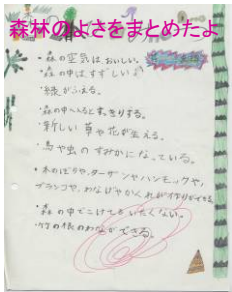 森林のよさをまとめたよ
・森の空気はおいしい。
・森の中は、すずしい
・緑がふえる。
・森の中へ入るとすっきりする。
・新しい草や花が生える。
・鳥や虫のすみかになっている。
・木のぼりや、ターザンやハンモックや、
ブランコや、わなげやかくれが作りができる
・森の中でこけてもいたくない。
・竹の根のわながができる。